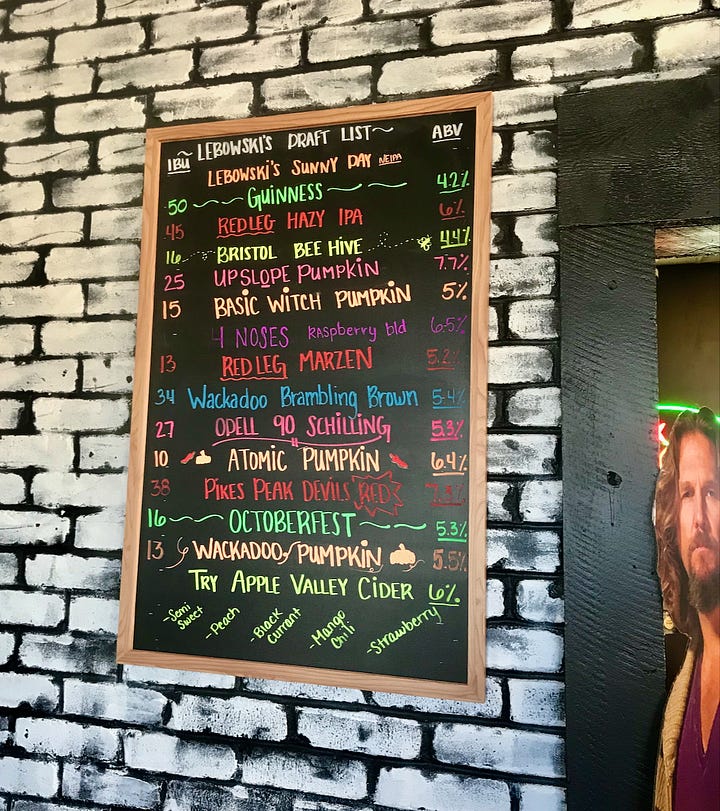 LEBOWSKI'S DRAFT LIST
IBU ABV
LEBOWSKI'S SUNNY DAY NEIPA
50 GUINNESS 4.2%
45 REDLEG HAZY IPA 6%
16 BRISTOL BEE HIVE 4.4%
25 UPSLOPE PUMPKIN 7.7%
15 BASIC WITCH PUMPKIN 5%
- 4 NOSES RASPBERRY bld 6.5%
13 REDLEG MARZEN 5.2%
34 Wackadoo Brambling Brown 5.4%
27 ODELL 90 SCHILLING 5.3%
10 ATOMIC PUMPKIN 6.4%
38 PIKES PEAK DEVILS RED
16 OCTOBERFEST 5.3%
13 WACKADOO PUMPKIN 5.5%
TRY APPLE VALLEY CIDER 6%
-Semi Sweet
-Peach
-Black Currant
-Mango Chili
-Strawberry